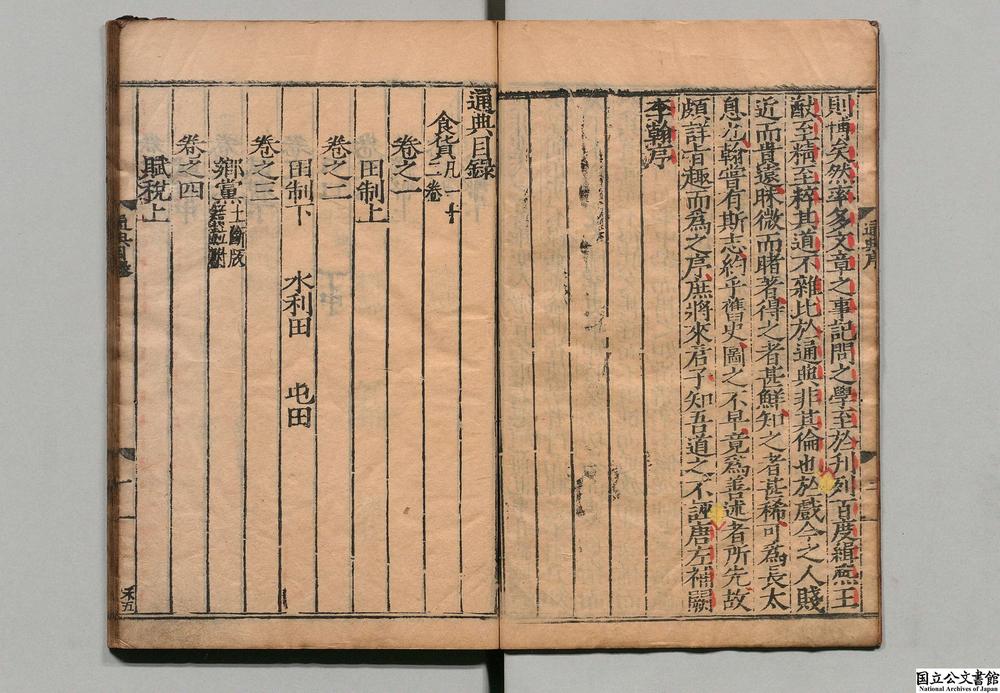 則博矣然率多文章之事記問之學至於刋列百度緝熈王
猷至精至粹其道不雜比於通典非其倫也於戲今之人賤
近而貴遠昧微而睹著得之者甚鮮知之者甚稀可為長太
息也翰嘗有斯志約乎舊史圖之不早竟為善述者所先故
頗詳旨趣而為之序庶將來君子知吾道之不誣唐左補闕
李翰序
通典序
通典目録
食貨凡一十二卷
卷之一
田制上
卷之二
田制下 水利田 屯田
卷之三
鄉黨土斷版
卷之四
賦稅上
通典目録
一
国立公文書館
National Archives of Japan